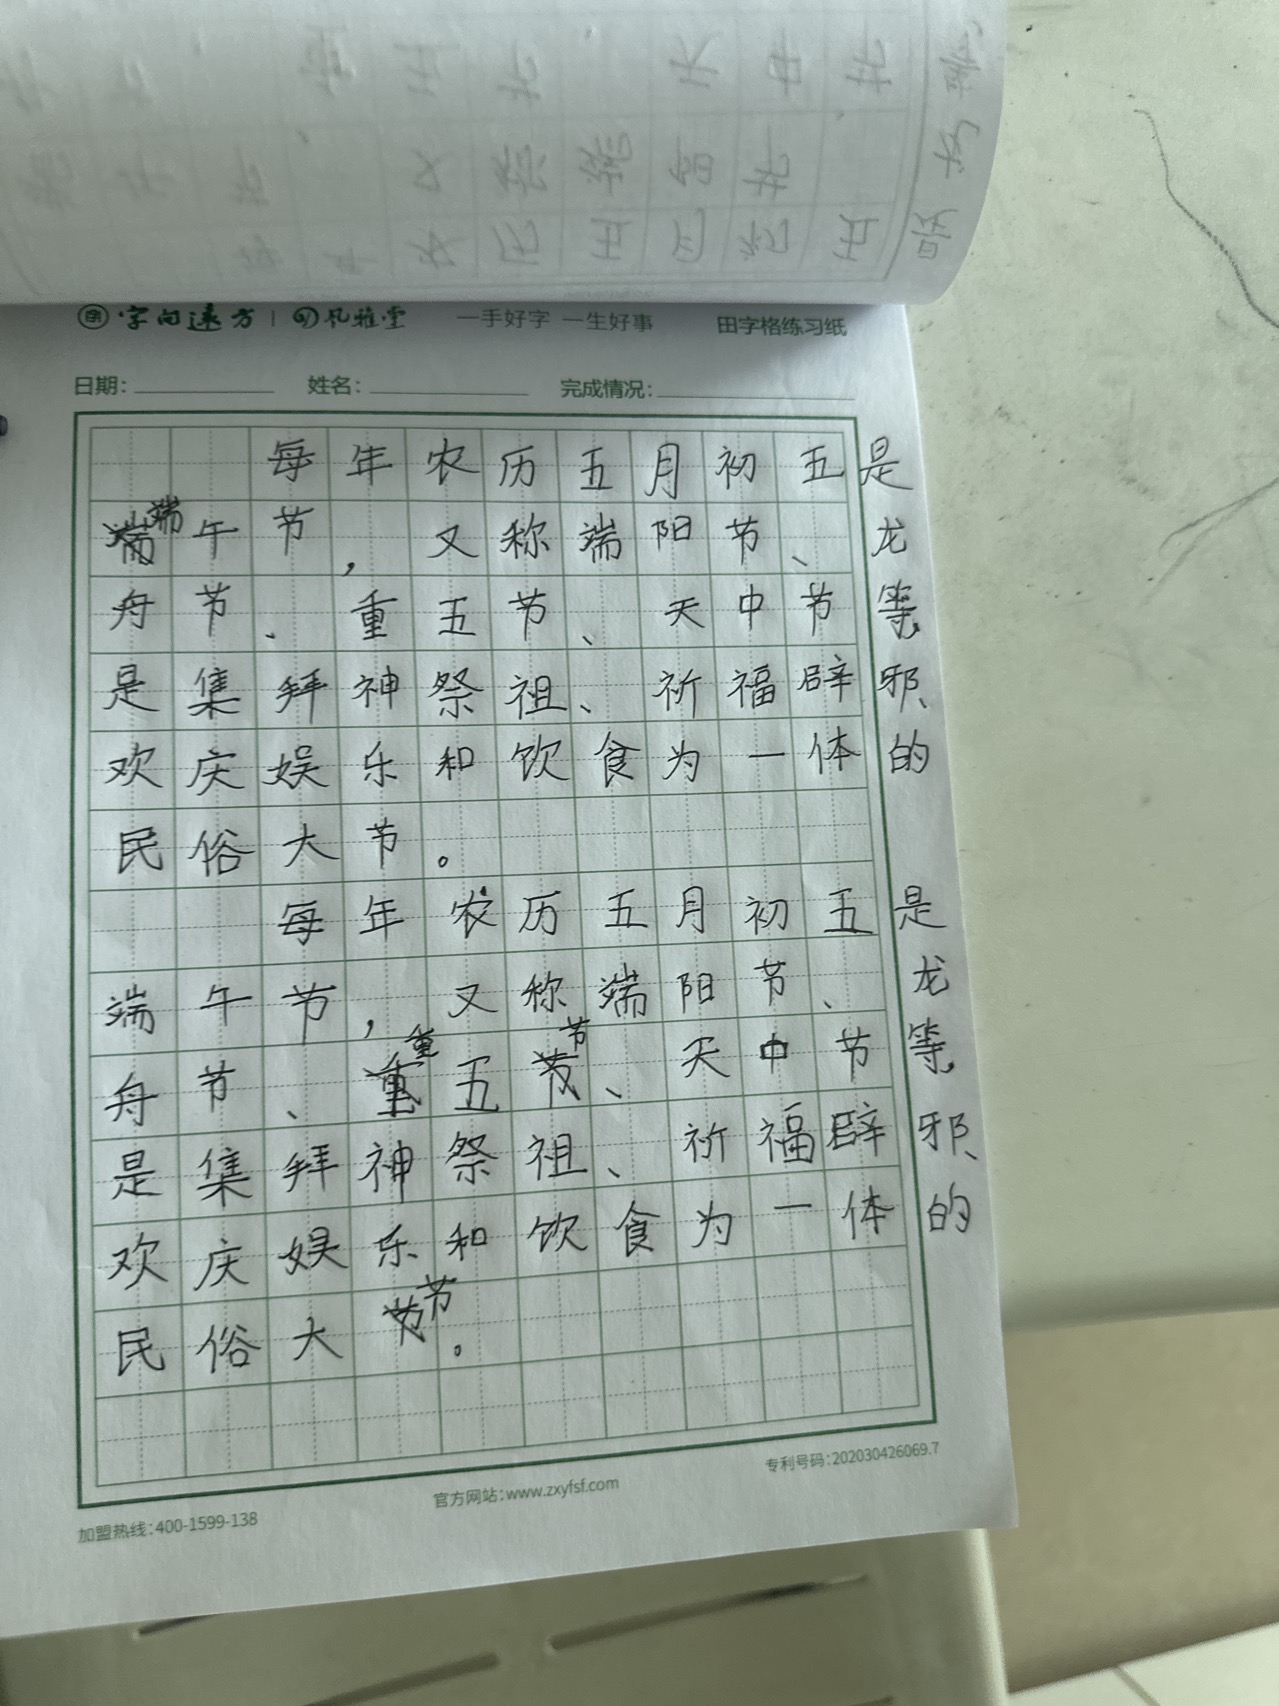 字向远方 | 风雅堂 一手好字 一生好事 田字格练习纸
日期： 姓名： 完成情况：
每年农历五月初五是
端午节，又称端阳节、龙
舟节、重五节、天中节等，
是集拜神祭祖、祈福辟邪、
欢庆娱乐和饮食为一体的
民俗大节。
每年农历五月初五是
端午节，又称端阳节、龙
舟节、重五节、天中节等，
是集拜神祭祖、祈福辟邪、
欢庆娱乐和饮食为一体的
民俗大节。
专利号码：202030426069.7
官方网站：www.zxyfsf.com
加盟热线：400-1599-138